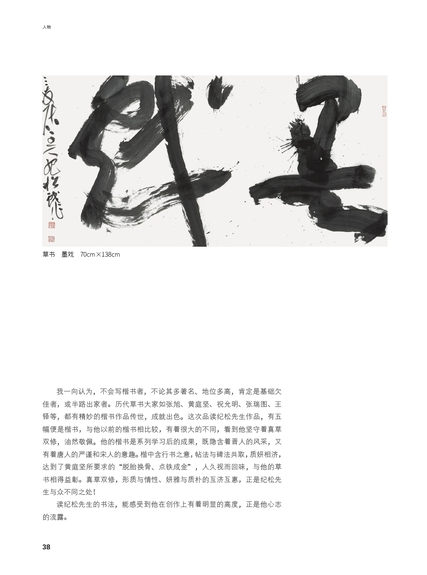 人物
墨戏
草书　墨戏　70cm×138cm
我一向认为，不会写楷书者，不论其多著名、地位多高，肯定是基础欠
佳者，或半路出家者。历代草书大家如张旭、黄庭坚、祝允明、张瑞图、王
铎等，都有精妙的楷书作品传世，成就出色。这次品读纪松先生作品，有五
幅便是楷书，与他以前的楷书相比较，有着很大的不同，看到他坚守着真草
双修，油然敬佩。他的楷书是系列学习后的成果，既隐含着晋人的风采，又
有着唐人的严谨和宋人的意趣。楷中含行书之意，帖法与碑法共取，质妍相济，
达到了黄庭坚所要求的“脱胎换骨、点铁成金”，人久视而回味，与他的草
书相得益彰。真草双修，形质与情性、妍雅与质朴的互济互惠，正是纪松先
生与众不同之处！
读纪松先生的书法，能感受到他在创作上有着明显的高度，正是他心志
的流露。
38